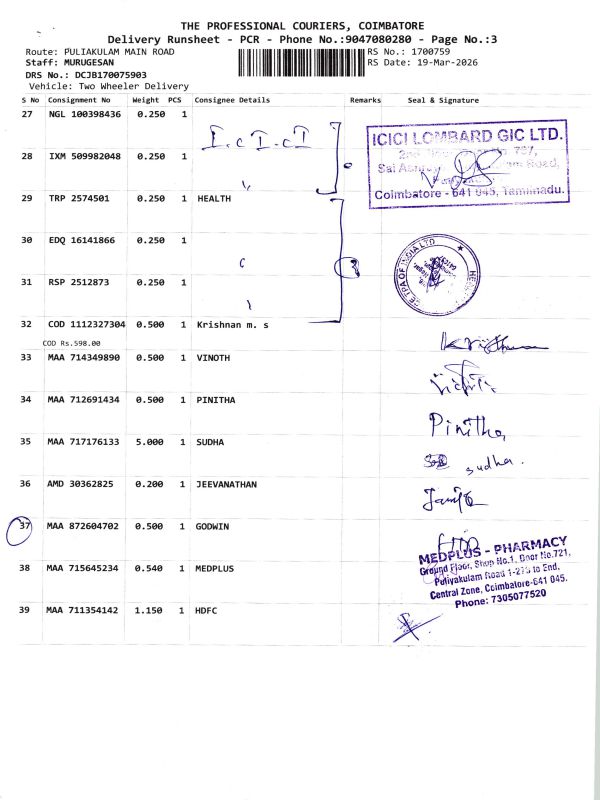 THE PROFESSIONAL COURIERS, COIMBATORE
Delivery Runsheet - PCR - Phone No.:9047080280 - Page No.:3
Route: PULIAKULAM MAIN ROAD RS No.: 1700759
Staff: MURUGESAN RS Date: 19-Mar-2026
DRS No.: DCJB170075903
Vehicle: Two Wheeler Delivery
S No Consignment No Weight PCS Consignee Details Remarks Seal & Signature
27 NGL 100398436 0.250 1
I.cI.cI
ICICI LOMBARD GIC LTD.
28 IXM 509982048 0.250 1
Road,
Coimbatore - 641 045, Tamilnadu.
29 TRP 2574501 0.250 1 HEALTH
30 EDQ 16141866 0.250 1
TPA OF INDIA LTD
31 RSP 2512873 0.250 1
32 COD 1112327304 0.500 1 Krishnan m. s
COD Rs.598.00
33 MAA 714349890 0.500 1 VINOTH
34 MAA 712691434 0.500 1 PINITHA
Pinitha,
35 MAA 717176133 5.000 1 SUDHA
sudha.
36 AMD 30362825 0.200 1 JEEVANATHAN
37 MAA 872604702 0.500 1 GODWIN
MEDPLUS - PHARMACY
Ground Floor, Shop No.1, Door No.721,
38 MAA 715645234 0.540 1 MEDPLUS
Puliyakulam Road 1-273 to End,
Central Zone, Coimbatore-641 045.
Phone: 7305077520
39 MAA 711354142 1.150 1 HDFC